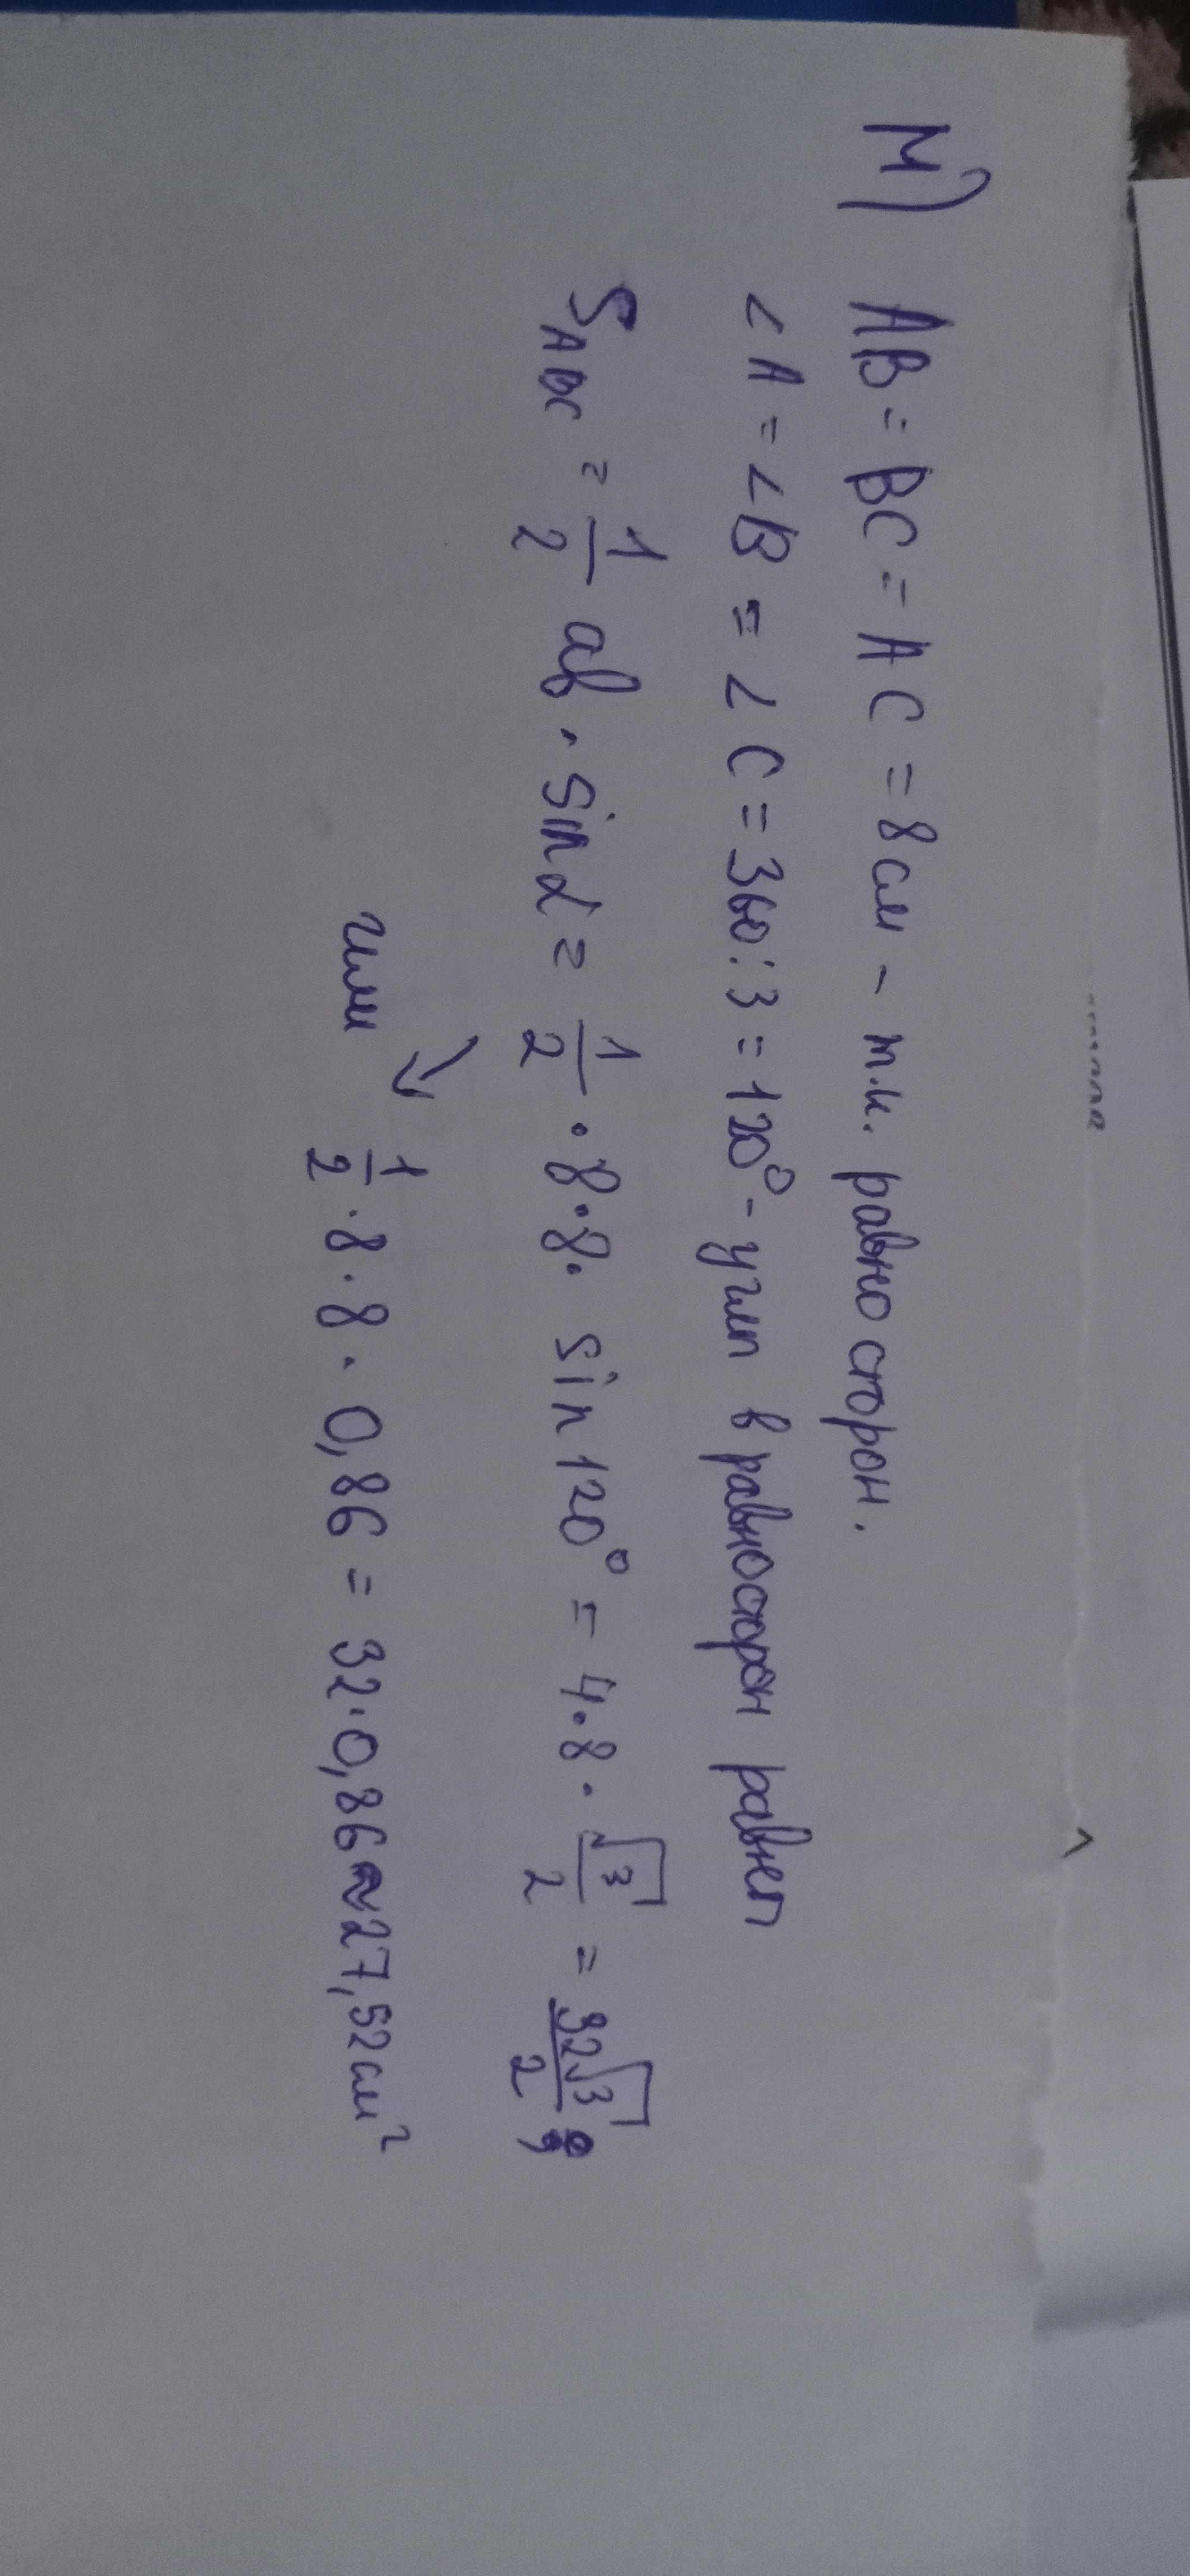 м) AB = BC = AC = 8см - т.к. равносторон.
∠A = ∠B = ∠C = 360:3 = 120° - углы в равносторон равны
S_ABC = 1/2 ab · sinα = 1/2 · 8 · 8 · sin 120° = 4 · 8 · √3/2 = 32√3/2
или ↘ 1/2 · 8 · 8 · 0,86 = 32 · 0,86 ≈ 27,52см²